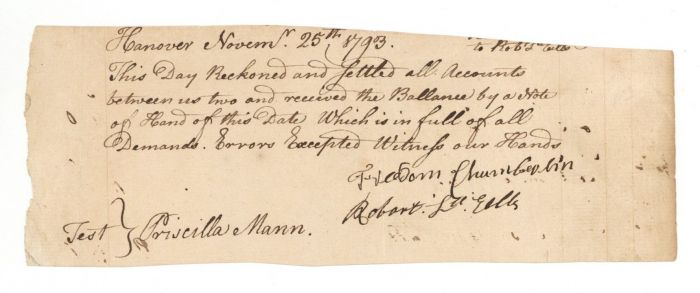 Hanover Novemr. 25th, 1793.
to Robt
This Day Reckoned and settled all Accounts
between us two and received the Ballance by a Note
of Hand of this Date Which is in full of all
Demands. Errors Excepted Witness our Hands
Freedom Chamberlin
Robart Eells
Test } Priscilla Mann.